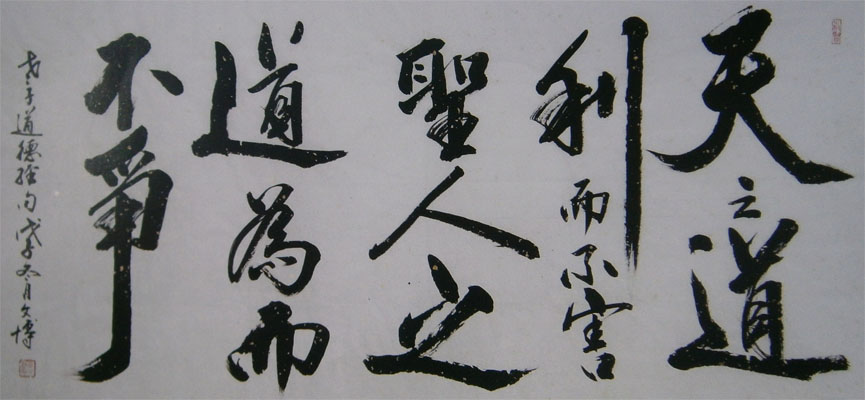 天之道
利而不害
聖人之
道為而
不爭
老子道德經句戊子冬月文博